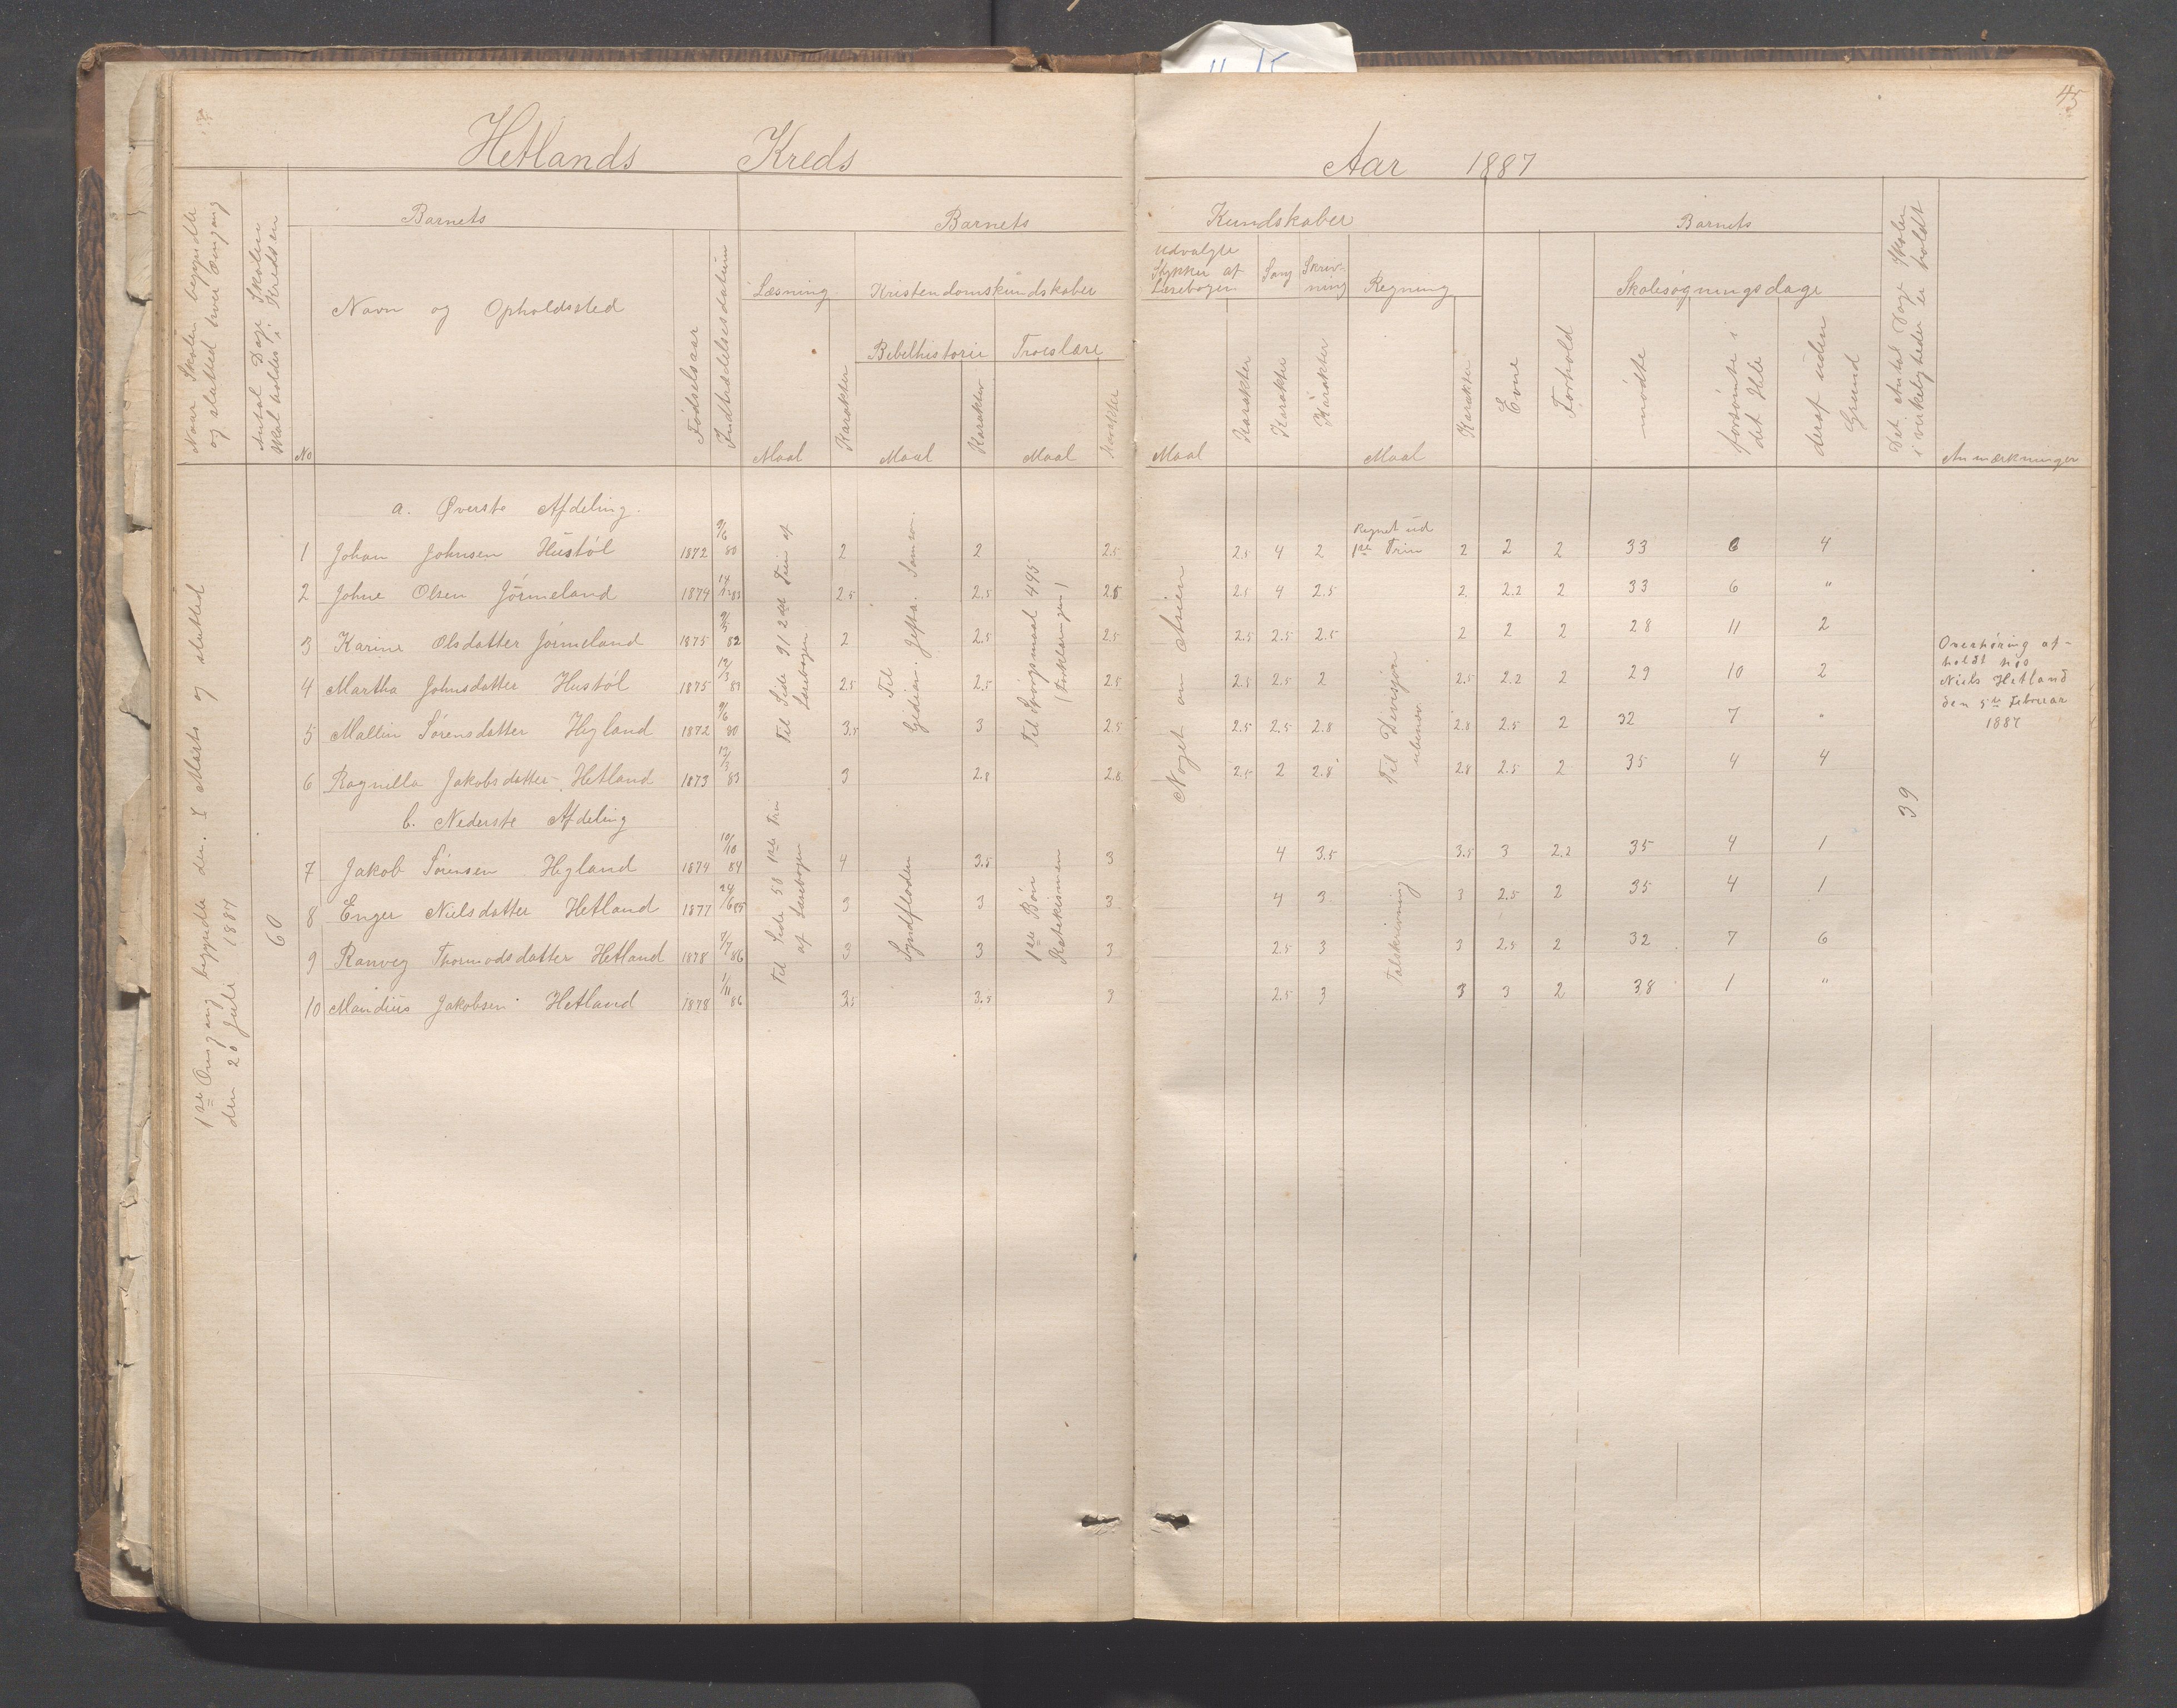 45
Hetlands Kreds
Aar 1887
Naar Skolen begyndte
og slutted hver Omgang
Antal Dage Skolen
skal holdes i Kredsen
Barnets
No
Navn og Opholdssted
Fødselsaar
Indtrædelsesdatum
Barnets
Kundskaber
Læsning
Maal
Karakter
Kristendomskundskaber
Bibelhistorie
Maal
Karakter
Troeslære
Maal
Karakter
Udvalgte
Stykker af
Læsebogen
Maal
Karakter
Sang
Karakter
Skriv-
ning
Karakter
Regning
Maal
Karakter
Barnets
Evne
Forhold
Skolesøgningsdage
mødte
forsømte i
det Hele
deraf uden
Grund
Det Antal Dage Skolen
i virkeligheden er holdt
Anmærkninger
1ste Omgang begyndte den 1 Marts og slutted
den 20 Juli 1887
60
a. Øverste Afdeling.
1 Johan Johnsen Hustøl 1872 9/6 80 2 2 2.5 2.5 4 2 2 2 2 33 6 4
2 Johne Olsen Jørmeland 1874 14/12 83 2.5 2.5 2.5 2.5 4 2.5 2 2.2 2 33 6 "
3 Karine Olsdatter Jørmeland 1875 9/5 82 2 2.5 2.5 2.5 2.5 2.5 2 2 2 28 11 2
4 Martha Johnsdatter Hustøl 1875 12/3 83 2.5 2.5 2.5 2.5 2.5 2 2.5 2.2 2 29 10 2
5 Mallin Sørensdatter Hegland 1872 9/6 80 3.5 3 2.5 2.5 2.5 2.8 2.8 2.5 2 32 7 "
6 Ragnilla Jakobsdatter Hetland 1873 12/3 83 3 2.8 2.8 2.5 2 2.8 2.8 2.5 2 35 4 4
b. Nederste Afdeling
7 Jakob Sørensen Hegland 1874 10/10 84 4 3.5 3 4 3.5 3.5 3 2.2 35 4 1
8 Enger Nielsdatter Hetland 1877 24/6 85 3 3 3 4 3 3 2.5 2 35 4 1
9 Ranveg Thormodsdatter Hetland 1878 7/7 86 3 3 3 2.5 3 3 2.5 2 32 7 6
10 Mandius Jakobsen Hetland 1878 1/11 86 3.5 3.5 3 2.5 3 3 3 2 38 1 "
Til Side 91 2det Trin af
Læsebogen
Til
Gideon. Jefta. Samson.
Til Spørgsmaal 495
(Forklaringen)
Noget om Asien
Regnet ud
1ste Trin
Til Division
ubenævn
Til Side 58 1ste Trin
af Læsebogen
Syndfloden
1ste Bøn
Katekismen
Talskrivning
39
Overhøring af-
holdt hos
Niels Hetland
den 5te Februar
1887